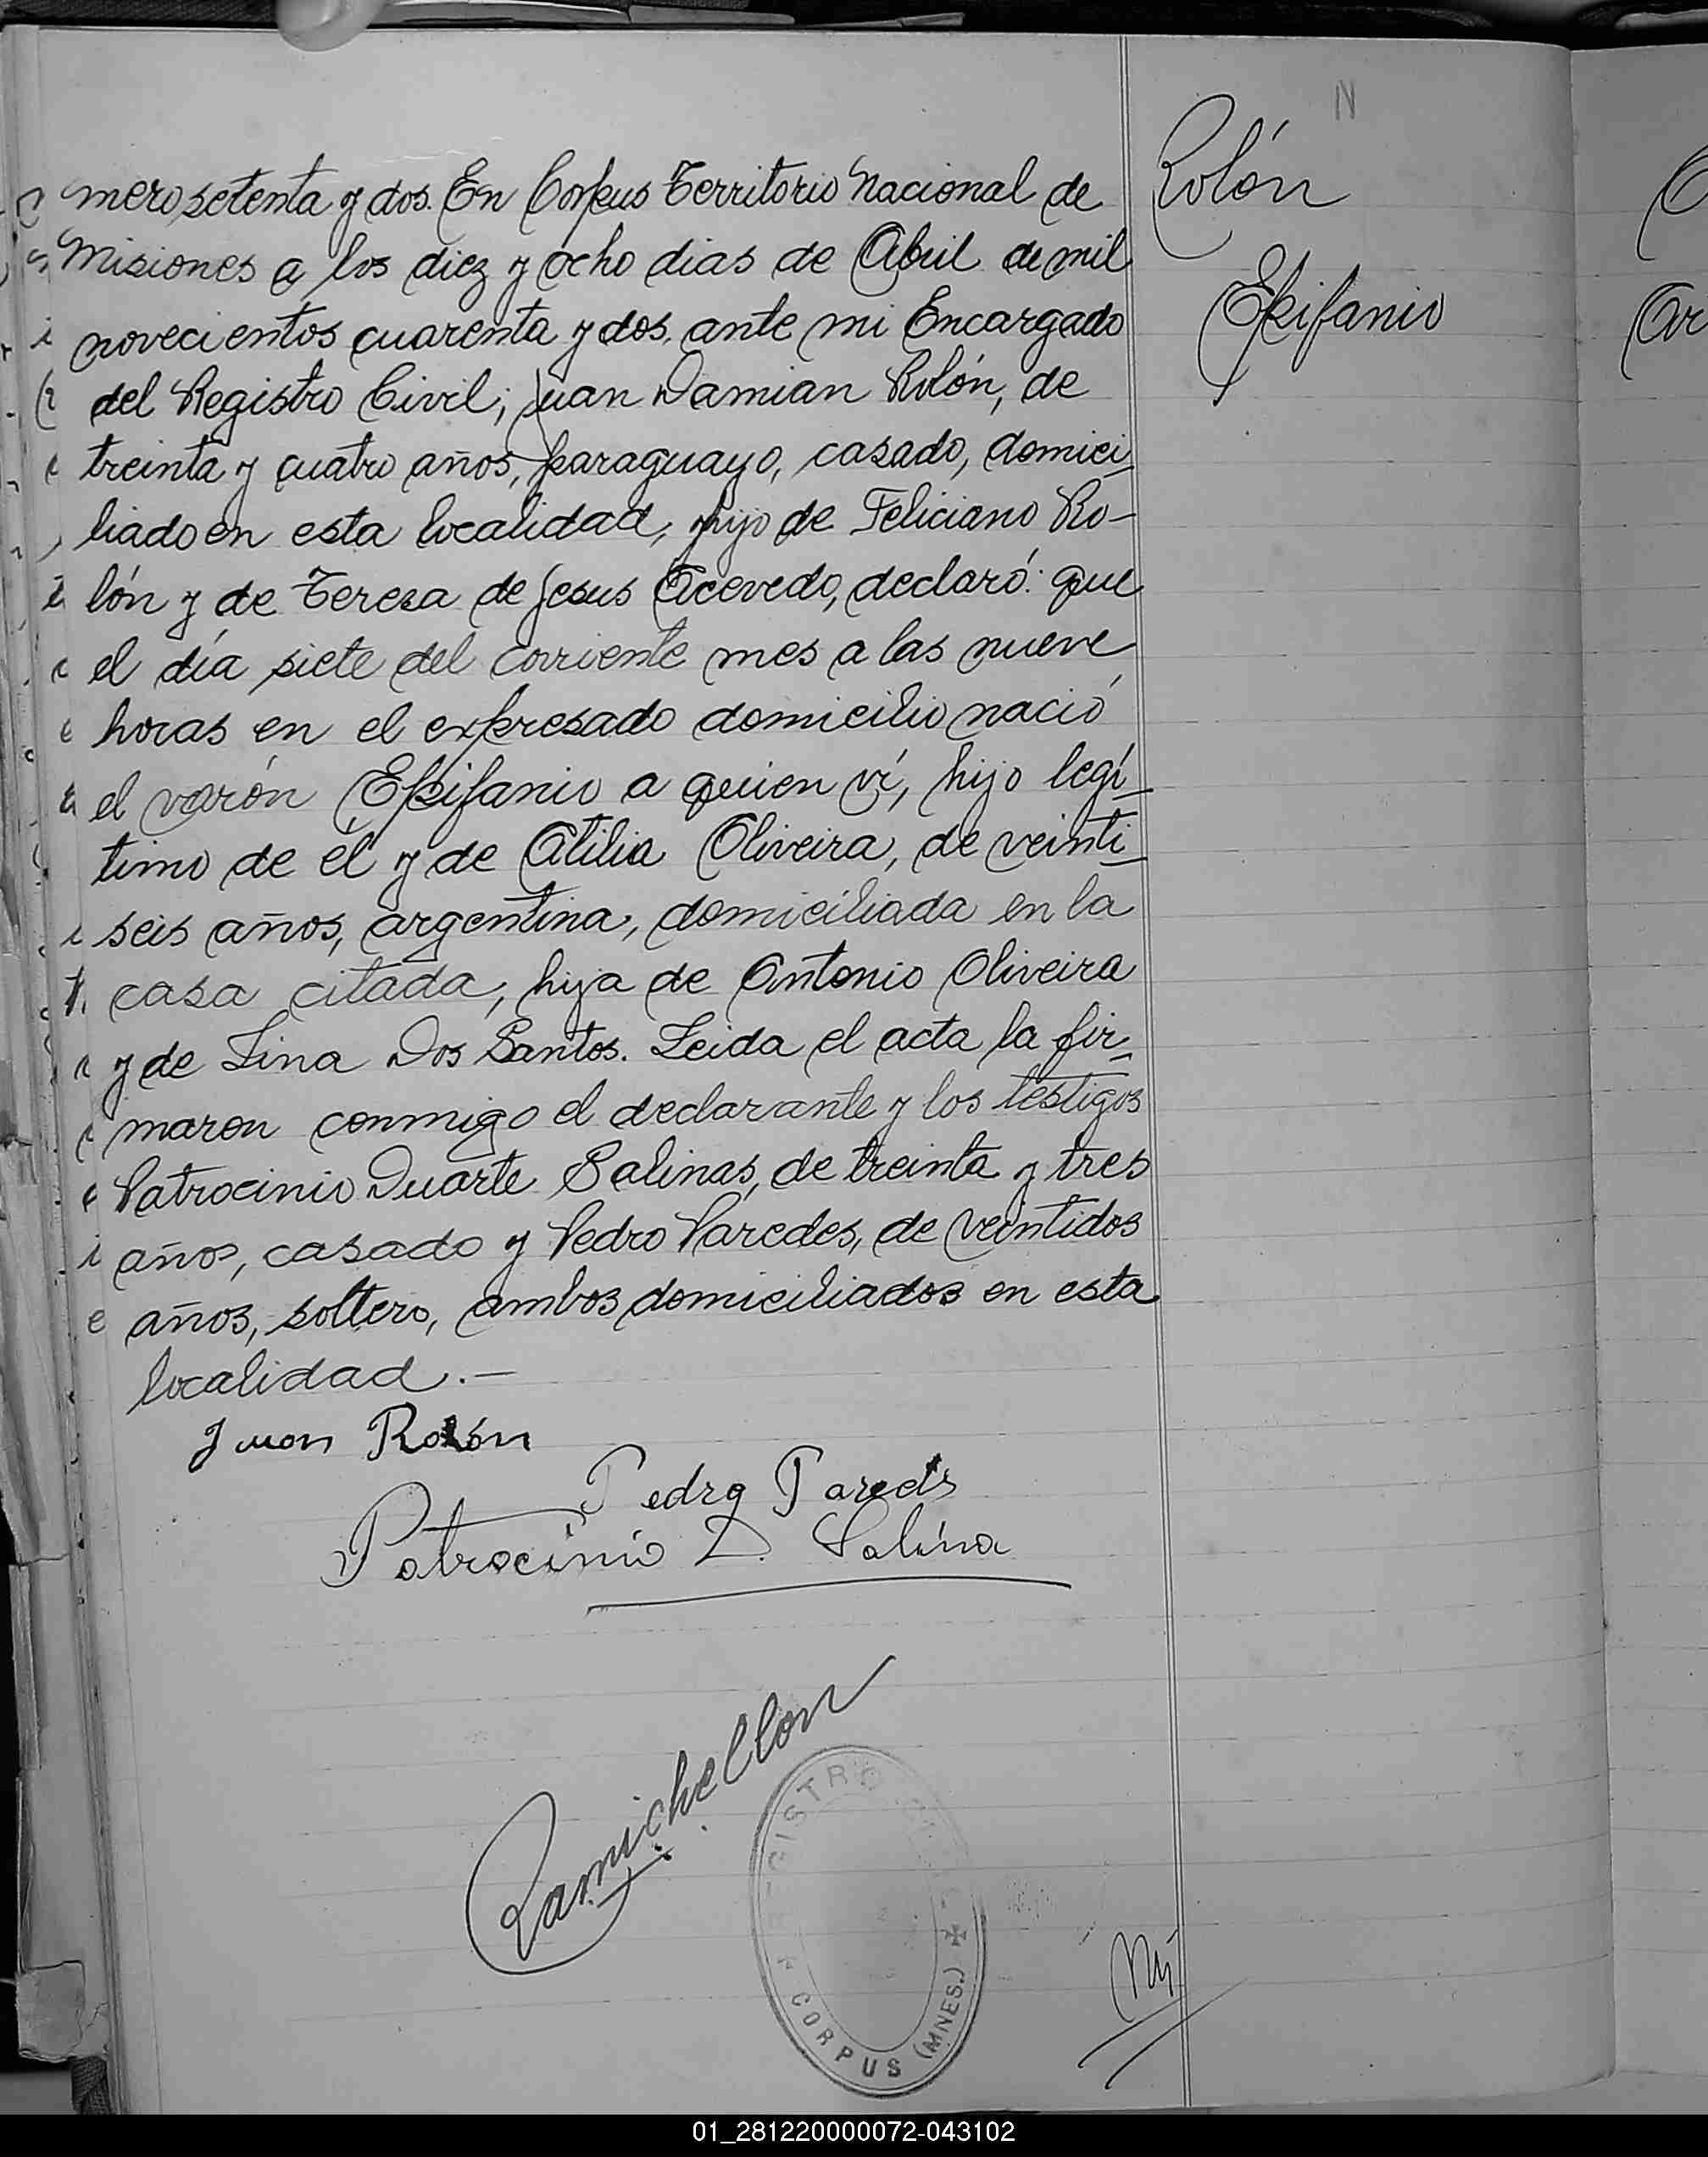 N
mero setenta y dos. En Corpus Territorio Nacional de
Misiones a los diez y ocho dias de Abril de mil
novecientos cuarenta y dos, ante mi Encargado
del Registro Civil; Juan Damian Rolón, de
treinta y cuatro años, paraguayo, casado, domici
liado en esta localidad, hijo de Feliciano Ro-
lón y de Teresa de Jesus Acevedo, declaró: que
el día siete del corriente mes a las nueve
horas en el expresado domicilio nació
el varón Epifanio a quien ví, hijo legí
timo de él y de Atilia Oliveira, de veinti
seis años, argentina, domiciliada en la
casa citada, hija de Antonio Oliveira
y de Lina Dos Santos. Leida el acta la fir
maron conmigo el declarante y los testigos
Patrocinio Duarte Salinas, de treinta y tres
años, casado y Pedro Paredes, de veintidos
años, soltero, ambos domiciliados en esta
localidad.—
Juan Rolón
Pedro Pareds
Patrocinio D. Salina
REGISTRO
CORPUS (MNES.)
Rolón
Epifanio
01_281220000072-043102